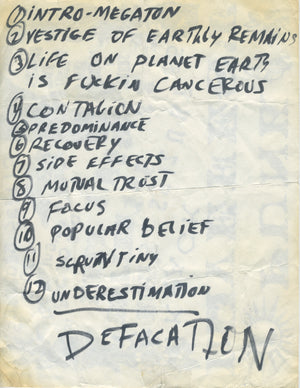 1 INTRO-MEGATON
2 VESTIGE OF EARTHLY REMAINS
3 LIFE ON PLANET EARTH
IS FUCKIN CANCEROUS
4 CONTAGION
5 PREDOMINANCE
6 RECOVERY
7 SIDE EFFECTS
8 MUTUAL TRUST
9 FOCUS
10 POPULAR BELIEF
11 SCRUNTINY
12 UNDERESTIMATION
DEFACATION